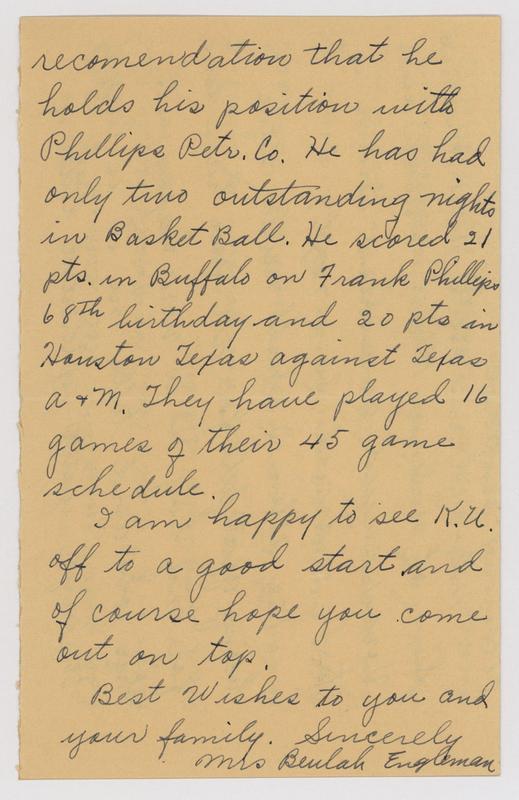 recomendation that he
holds his position with
Phillips Petr. Co. He has had
only two outstanding nights
in Basket Ball. He scored 21
pts. in Buffalo on Frank Phillips
68th birthday and 20 pts in
Houston Texas against Texas
a + M. They have played 16
games of their 45 game
schedule.
I am happy to see K.U.
off to a good start and
of course hope you come
out on top.
Best Wishes to you and
your family. Sincerely
Mrs Beulah Engleman